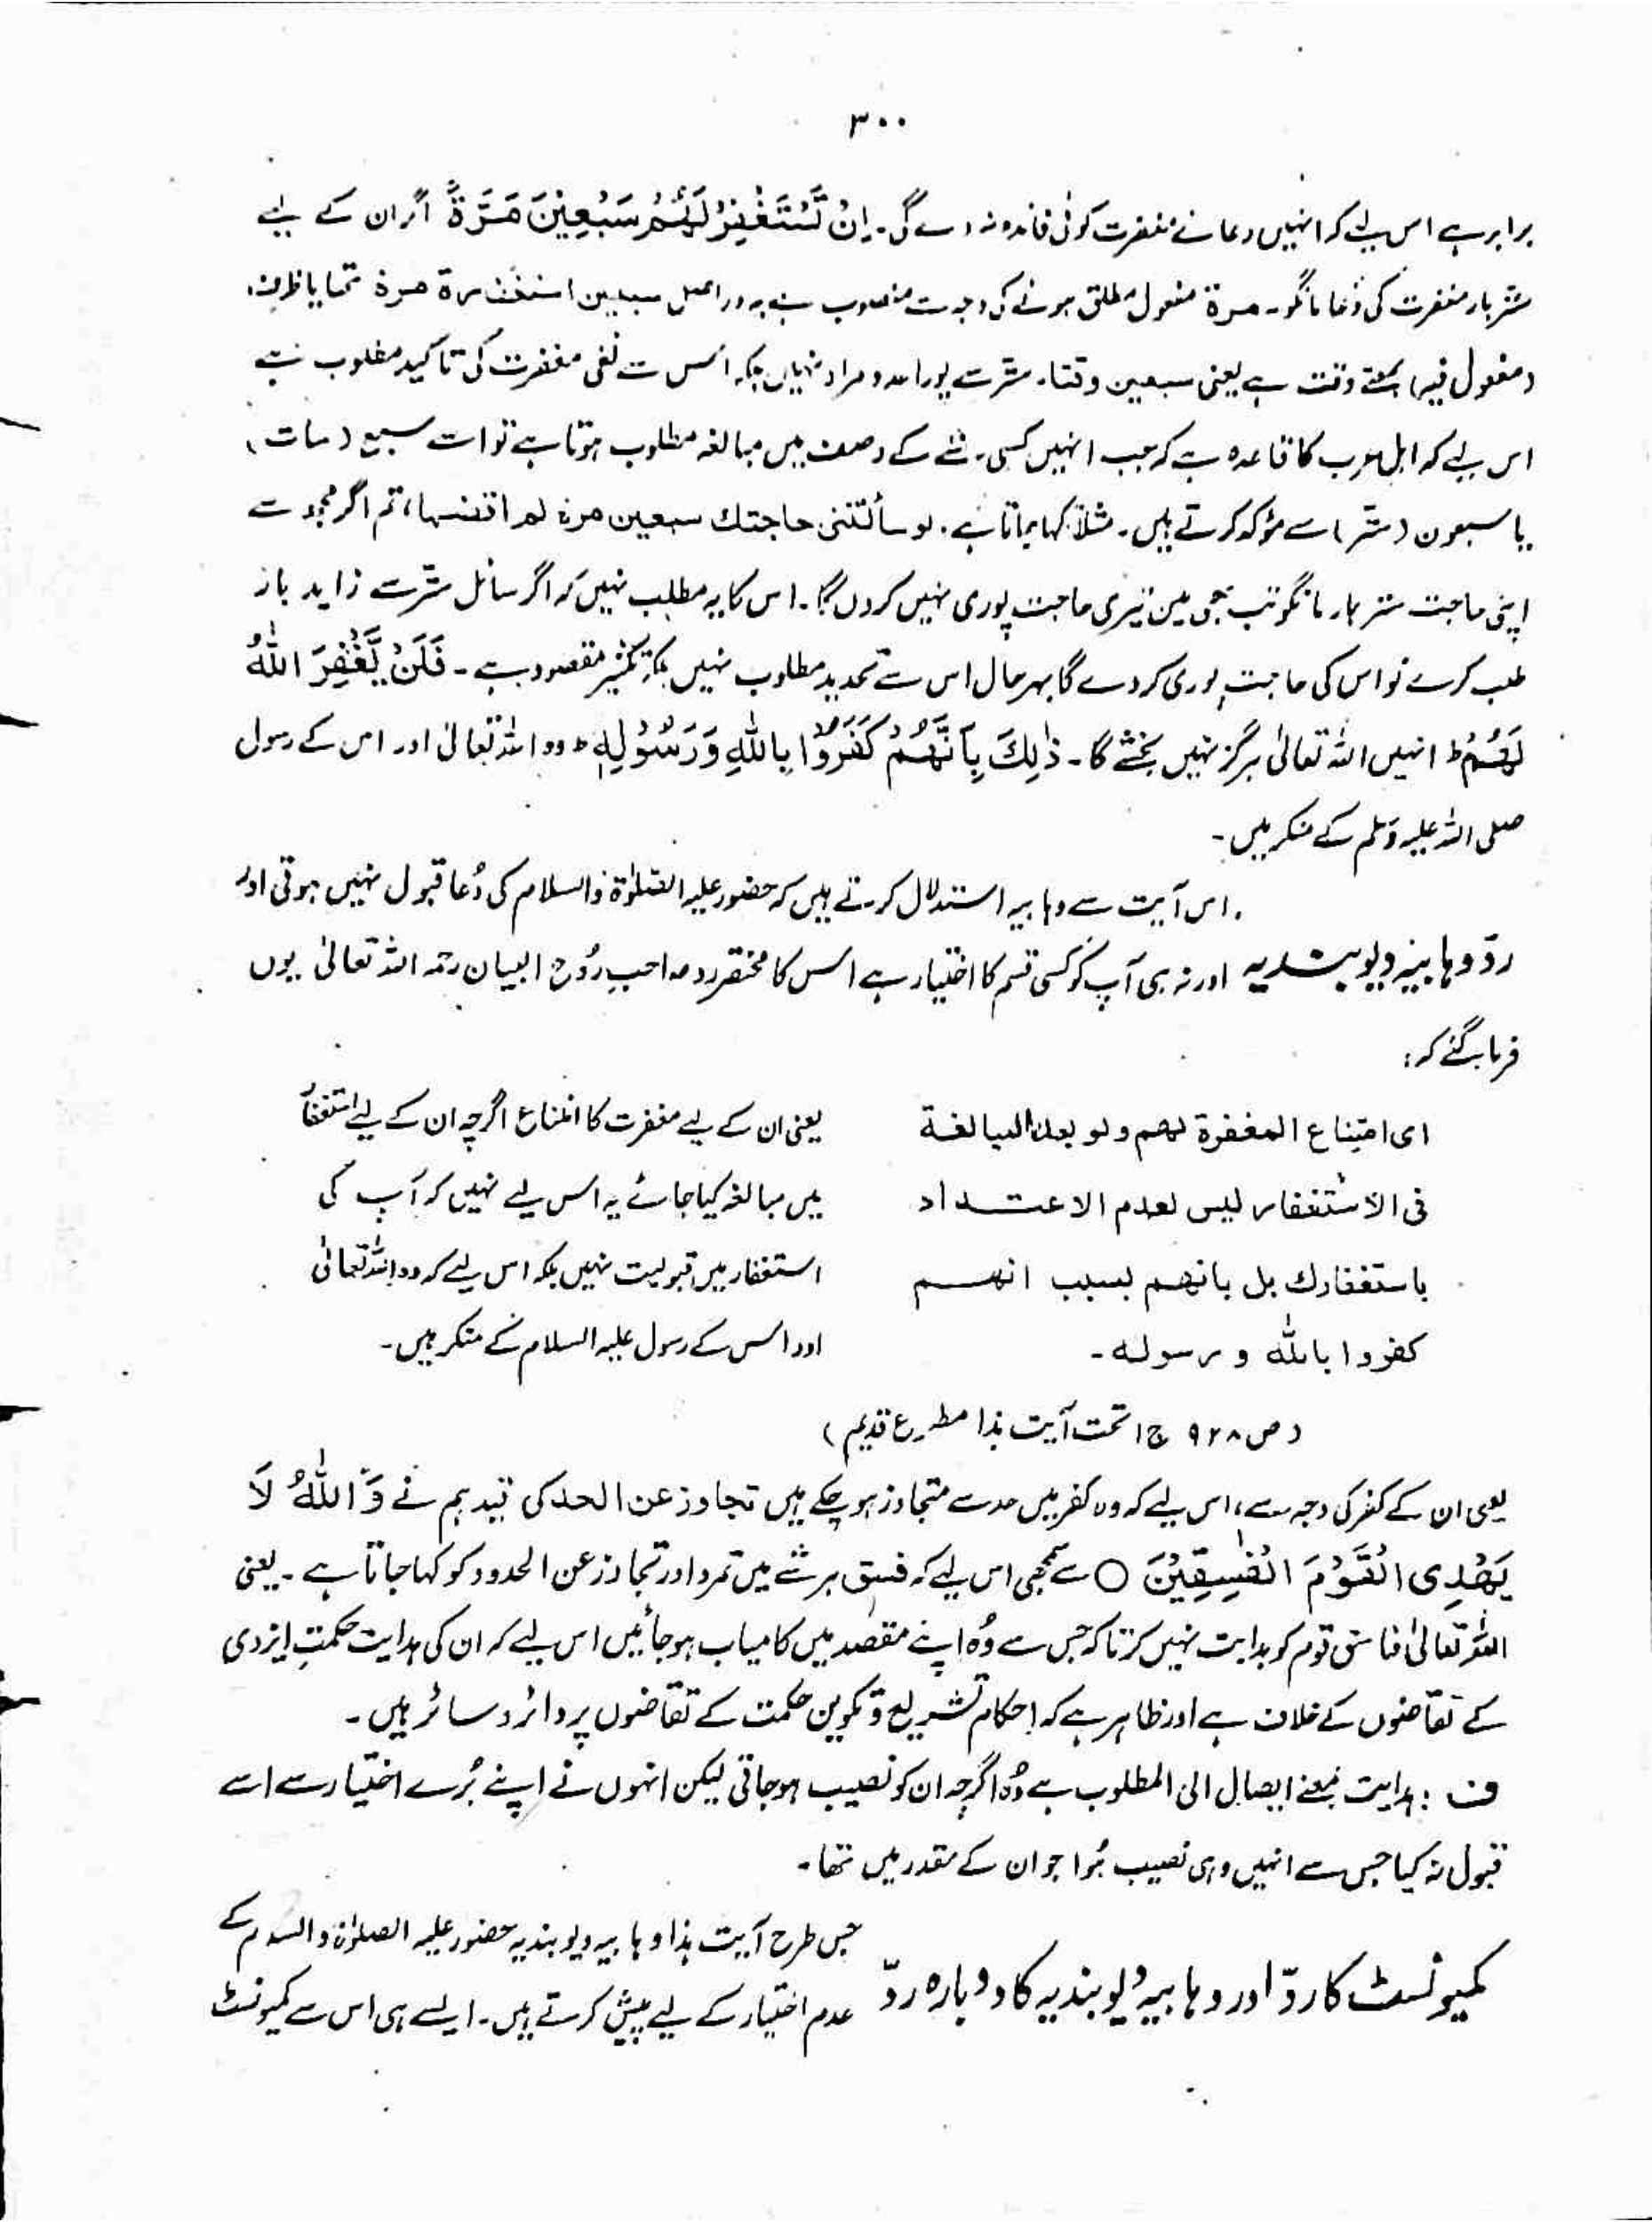 ۳۰۰
برابر ہے اس لیے کہ انہیں دعائے مغفرت کوئی فائدہ نہ دے گی۔ اِنْ تَسْتَغْفِرْ لَهُمْ سَبْعِيْنَ مَرَّةً اگر ان کے لیے
ستر بار مغفرت کی دُعا مانگو۔ مرة مفعول مطلق ہونے کی وجہ سے منصوب ہے دراصل سبعين مرة تھا یا ظرف
(مفعول فیہ) بمعنے وقت ہے یعنی سبعین وقتا۔ ستر سے پورا عدد مراد نہیں بلکہ اس سے نفی مغفرت کی تاکید مطلوب ہے
اس لیے کہ اہل عرب کا قاعدہ ہے کہ جب انہیں کسی شے کے وصف میں مبالغہ مطلوب ہوتا ہے تو اسے سبع (سات)
یا سبعون (ستر) سے مؤکد کرتے ہیں۔ مثلاً کہا جاتا ہے۔ لو سألتنی حاجتك سبعین مرة لم اقضها، تم اگر مجھ سے
اپنی حاجت ستر بار مانگو تب بھی میں تیری حاجت پوری نہیں کروں گا۔ اس کا یہ مطلب نہیں کہ اگر سائل ستر سے زاید بار
طلب کرے تو اس کی حاجت پوری کردے گا بہرحال اس سے تحدید مطلوب نہیں بلکہ تکثیر مقصود ہے۔ فَلَنْ يَّغْفِرَ اللّٰهُ
لَهُمْ ط انہیں اللہ تعالیٰ ہرگز نہیں بخشے گا۔ ذٰلِكَ بِاَنَّهُمْ كَفَرُوْا بِاللّٰهِ وَرَسُوْلِهٖ ط وہ اللہ تعالیٰ اور اس کے رسول
صلی اللہ علیہ وسلم کے منکر ہیں۔
اس آیت سے وہابیہ استدلال کرتے ہیں کہ حضور علیہ الصلوٰۃ والسلام کی دُعا قبول نہیں ہوتی اور
ردّ وہابیہ دیوبندیہ اور نہ ہی آپ کو کسی قسم کا اختیار ہے اس کا مختصر رد صاحبِ رُوح البیان رحمہ اللہ تعالیٰ یوں
فرما گئے کہ:
ای امتناع المغفرة لهم ولو بعد المبالغة
فی الاستغفار لیس لعدم الاعتداد
باستغفارك بل بانهم بسبب انهم
كفروا بالله و رسوله۔
یعنی ان کے لیے مغفرت کا امتناع اگرچہ ان کے لیے استغفار
میں مبالغہ کیا جائے یہ اس لیے نہیں کہ آپ کی
استغفار میں قبولیت نہیں بلکہ اس لیے کہ وہ اللہ تعالیٰ
اور اس کے رسول علیہ السلام کے منکر ہیں۔
(ص ۹۲۸ ج ۱ تحت آیت ہذا مطبوع قدیم)
یعنی ان کے کفر کی وجہ سے، اس لیے کہ وہ کفر میں حد سے متجاوز ہو چکے ہیں تجاوز عن الحد کی قید ہم نے وَاللّٰهُ لَا
يَهْدِى الْقَوْمَ الْفٰسِقِيْنَ ○ سے سمجھی اس لیے کہ فسق ہر شے میں تمرد اور تجاوز عن الحدود کو کہا جاتا ہے۔ یعنی
اللہ تعالیٰ فاسق قوم کو ہدایت نہیں کرتا کہ جس سے وُہ اپنے مقصد میں کامیاب ہوجائیں اس لیے کہ ان کی ہدایت حکمتِ ایزدی
کے تقاضوں کے خلاف ہے اور ظاہر ہے کہ احکام تشریع و تکوین حکمت کے تقاضوں پر دائر و سائر ہیں۔
ف : ہدایت بمعنے ایصال الی المطلوب ہے وُہ اگرچہ ان کو نصیب ہوجاتی لیکن انہوں نے اپنے بُرے اختیار سے اسے
قبول نہ کیا جس سے انہیں وہی نصیب ہُوا جو ان کے مقدر میں تھا۔
کمیونسٹ کا ردّ اور وہابیہ دیوبندیہ کا دوبارہ ردّ
جس طرح آیت ہذا وہابیہ دیوبندیہ حضور علیہ الصلوٰۃ والسلام کے
عدم اختیار کے لیے پیش کرتے ہیں۔ ایسے ہی اس سے کمیونسٹ